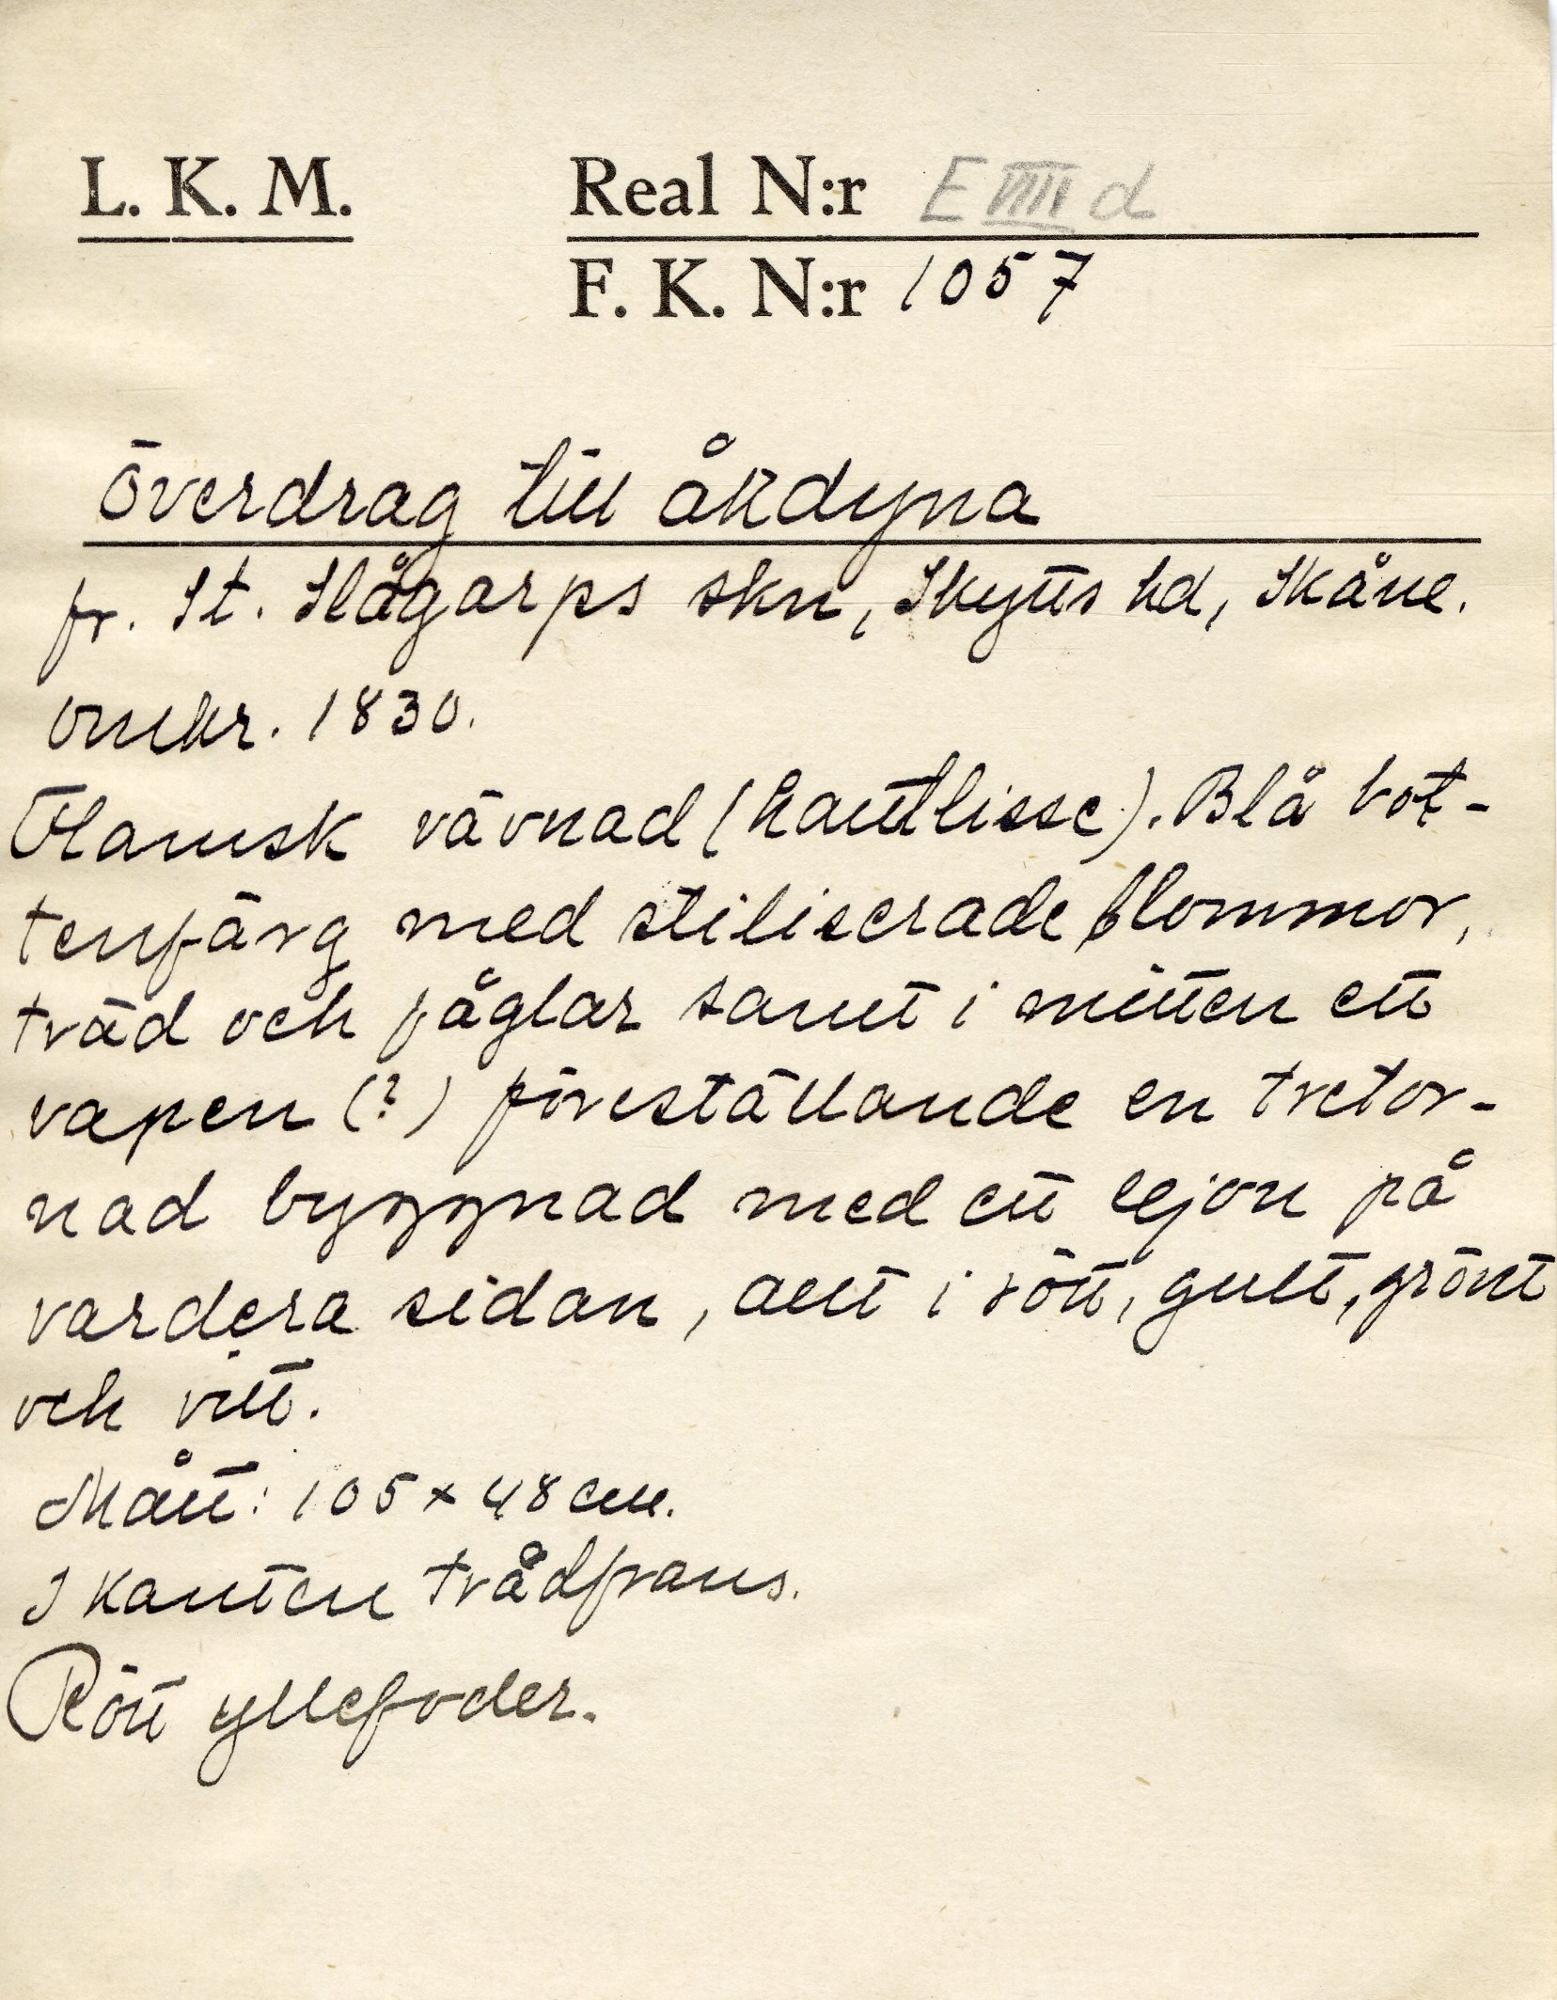 L. K. M. Real N:r E VIII d
F. K. N:r 1057
Överdrag till åkdyna
fr. St. Slågarps skn, Skytts hd, Skåne.
Omkr. 1830.
Flamsk vävnad (hautlisse). Blå bot-
tenfärg med stiliserade blommor,
träd och fåglar samt i mitten ett
vapen (?) föreställande en tretor-
nad byggnad med ett lejon på
vardera sidan, allt i rött, gult, grönt
och vitt.
Mått: 105 x 48 cm.
I kanten trådfrans.
Rött yllefoder.